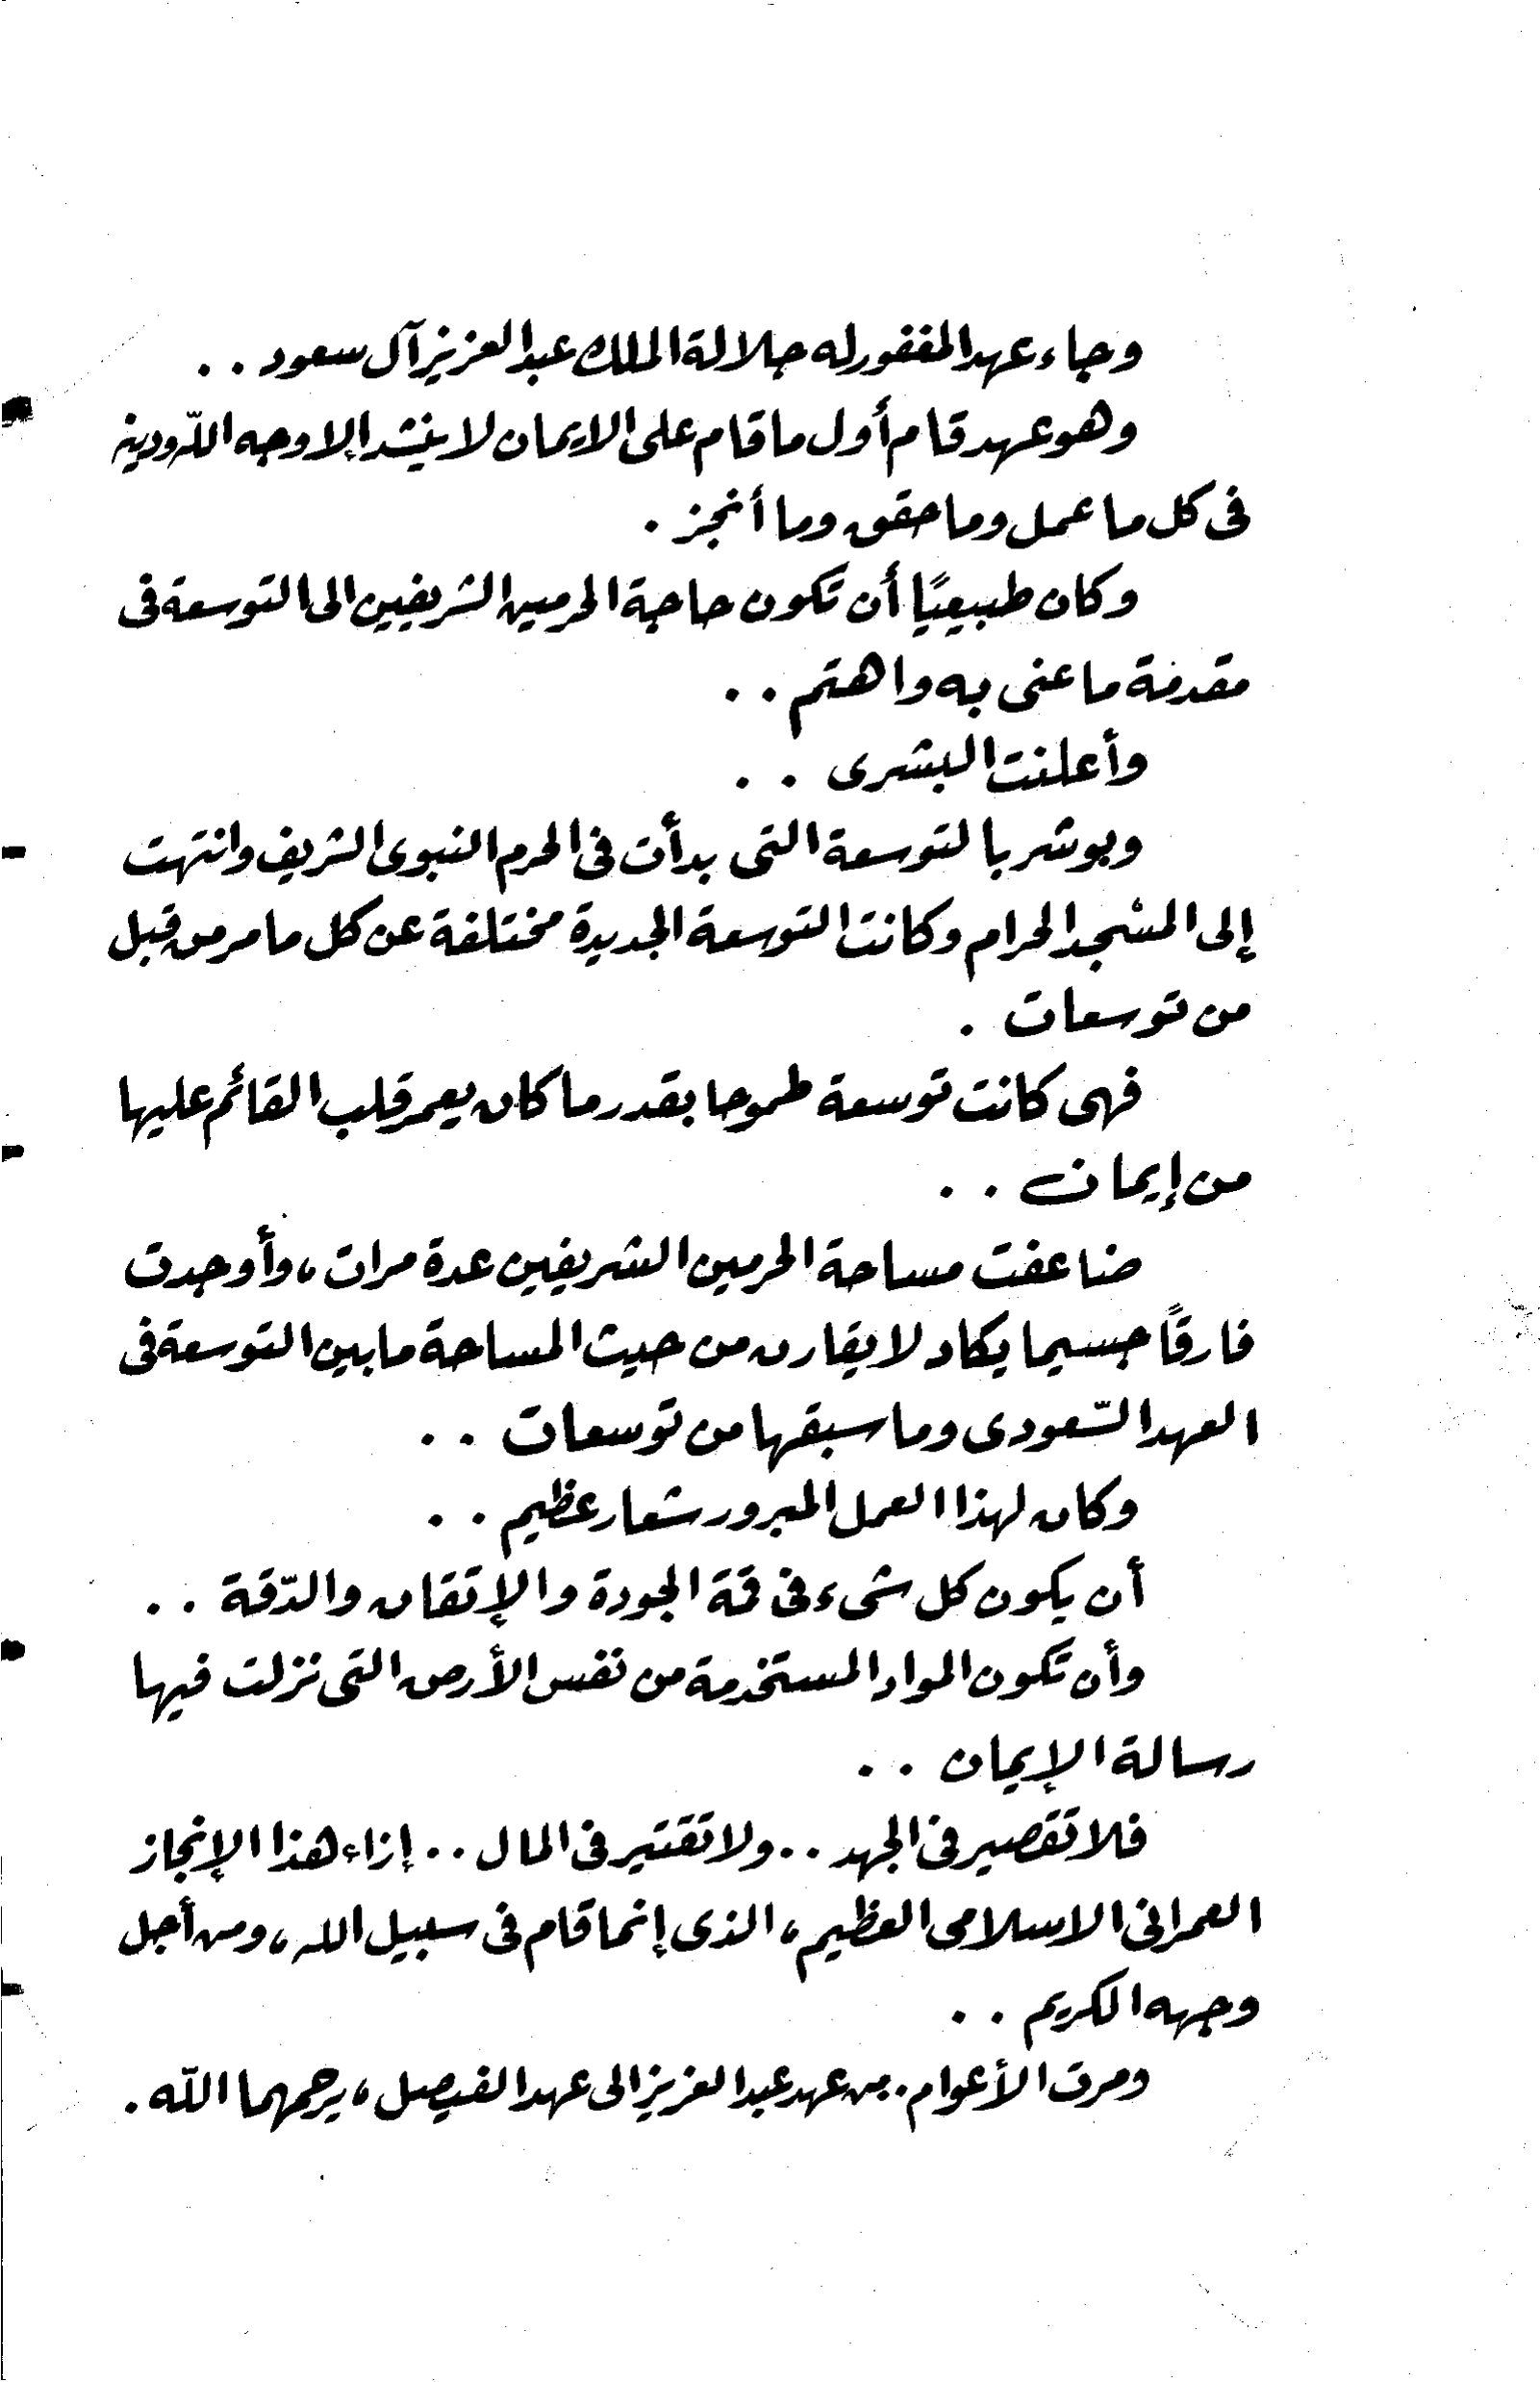 وجاء عهد المغفور له جلالة الملك عبد العزيز آل سعود . .
وهو عهد قام أول ما قام على الايمان لا ينشد إلا وجه الله ودينه
فى كل ما عمل وما حقق وما أنجز .
وكان طبيعيًا أن تكون حاجة الحرمين الشريفين الى التوسعة فى
مقدمة ما عنى به واهتم . .
وأعلنت البشرى . .
وبوشر بالتوسعة التى بدأت فى الحرم النبوى الشريف وانتهت
إلى المسجد الحرام وكانت التوسعة الجديدة مختلفة عن كل ما مر من قبل
من توسعات .
فهى كانت توسعة طموحا بقدر ما كان يعمر قلب القائم عليها
من إيمان . .
ضاعفت مساحة الحرمين الشريفين عدة مرات ، وأوجدت
فارقًا جسيما يكاد لا يقارن من حيث المساحة ما بين التوسعة فى
العهد السّعودى وما سبقها من توسعات . .
وكان لهذا العمل المبرور شعار عظيم . .
أن يكون كل شىء فى قمة الجودة والإتقان والدّقة . .
وأن تكون المواد المستخدمة من نفس الأرض التى نزلت فيها
رسالة الإيمان . .
فلا تقصير فى الجهد . . ولا تقتير فى المال . . إزاء هذا الإنجاز
العمرانى الاسلامى العظيم ، الذى إنما قام فى سبيل الله ، ومن أجل
وجهه الكريم . .
ومرت الأعوام . من عهد عبد العزيز الى عهد الفيصل ، يرحمهما الله .